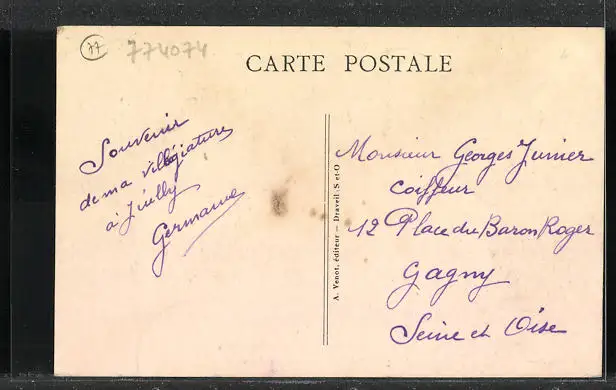 77
774074
CARTE POSTALE
Souvenir
de ma villégiature
à Juilly
Germaine
A. Venot, éditeur — Draveil. S et-O
Monsieur Georges Junier
Coiffeur
12 Place du Baron Roger
Gagny
Seine et Oise